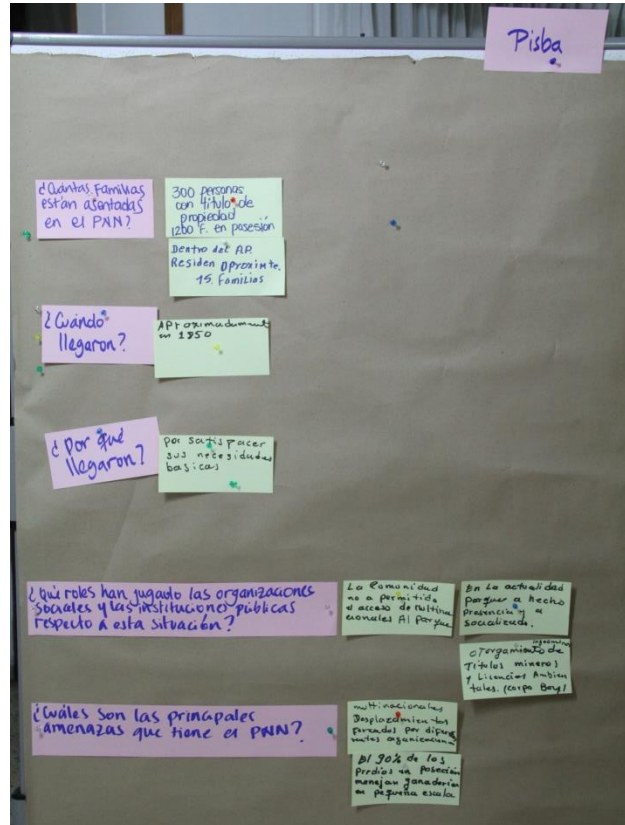 Pisba
¿Cuántas Familias
están asentadas
en el PNN?
300 personas
con título de
propiedad
1200 F. en posesión
Dentro del A.P.
Residen aproximte.
15 familias
¿Cuándo
llegaron?
Aproximadament
en 1850
¿Por qué
llegaron?
por satisfacer
sus necesidades
basicas
¿Qué roles han jugado las organizaciones
sociales y las instituciones públicas
respecto a esta situación?
La Comunidad
no a permitido
el acceso de multina
cionales Al parque
En La actualidad
parques a hecho
presencia y a
socializado.
otorgamiento de
Títulos mineros
y Licencias Ambien
tales. (Corpo Boy)
¿Cuáles son las principales
amenazas que tiene el PNN?
multinacionales
Desplazamientos
forzados por difere
ntes
El 90% de los
predios en posesión
manejan ganadería
en pequeña escala